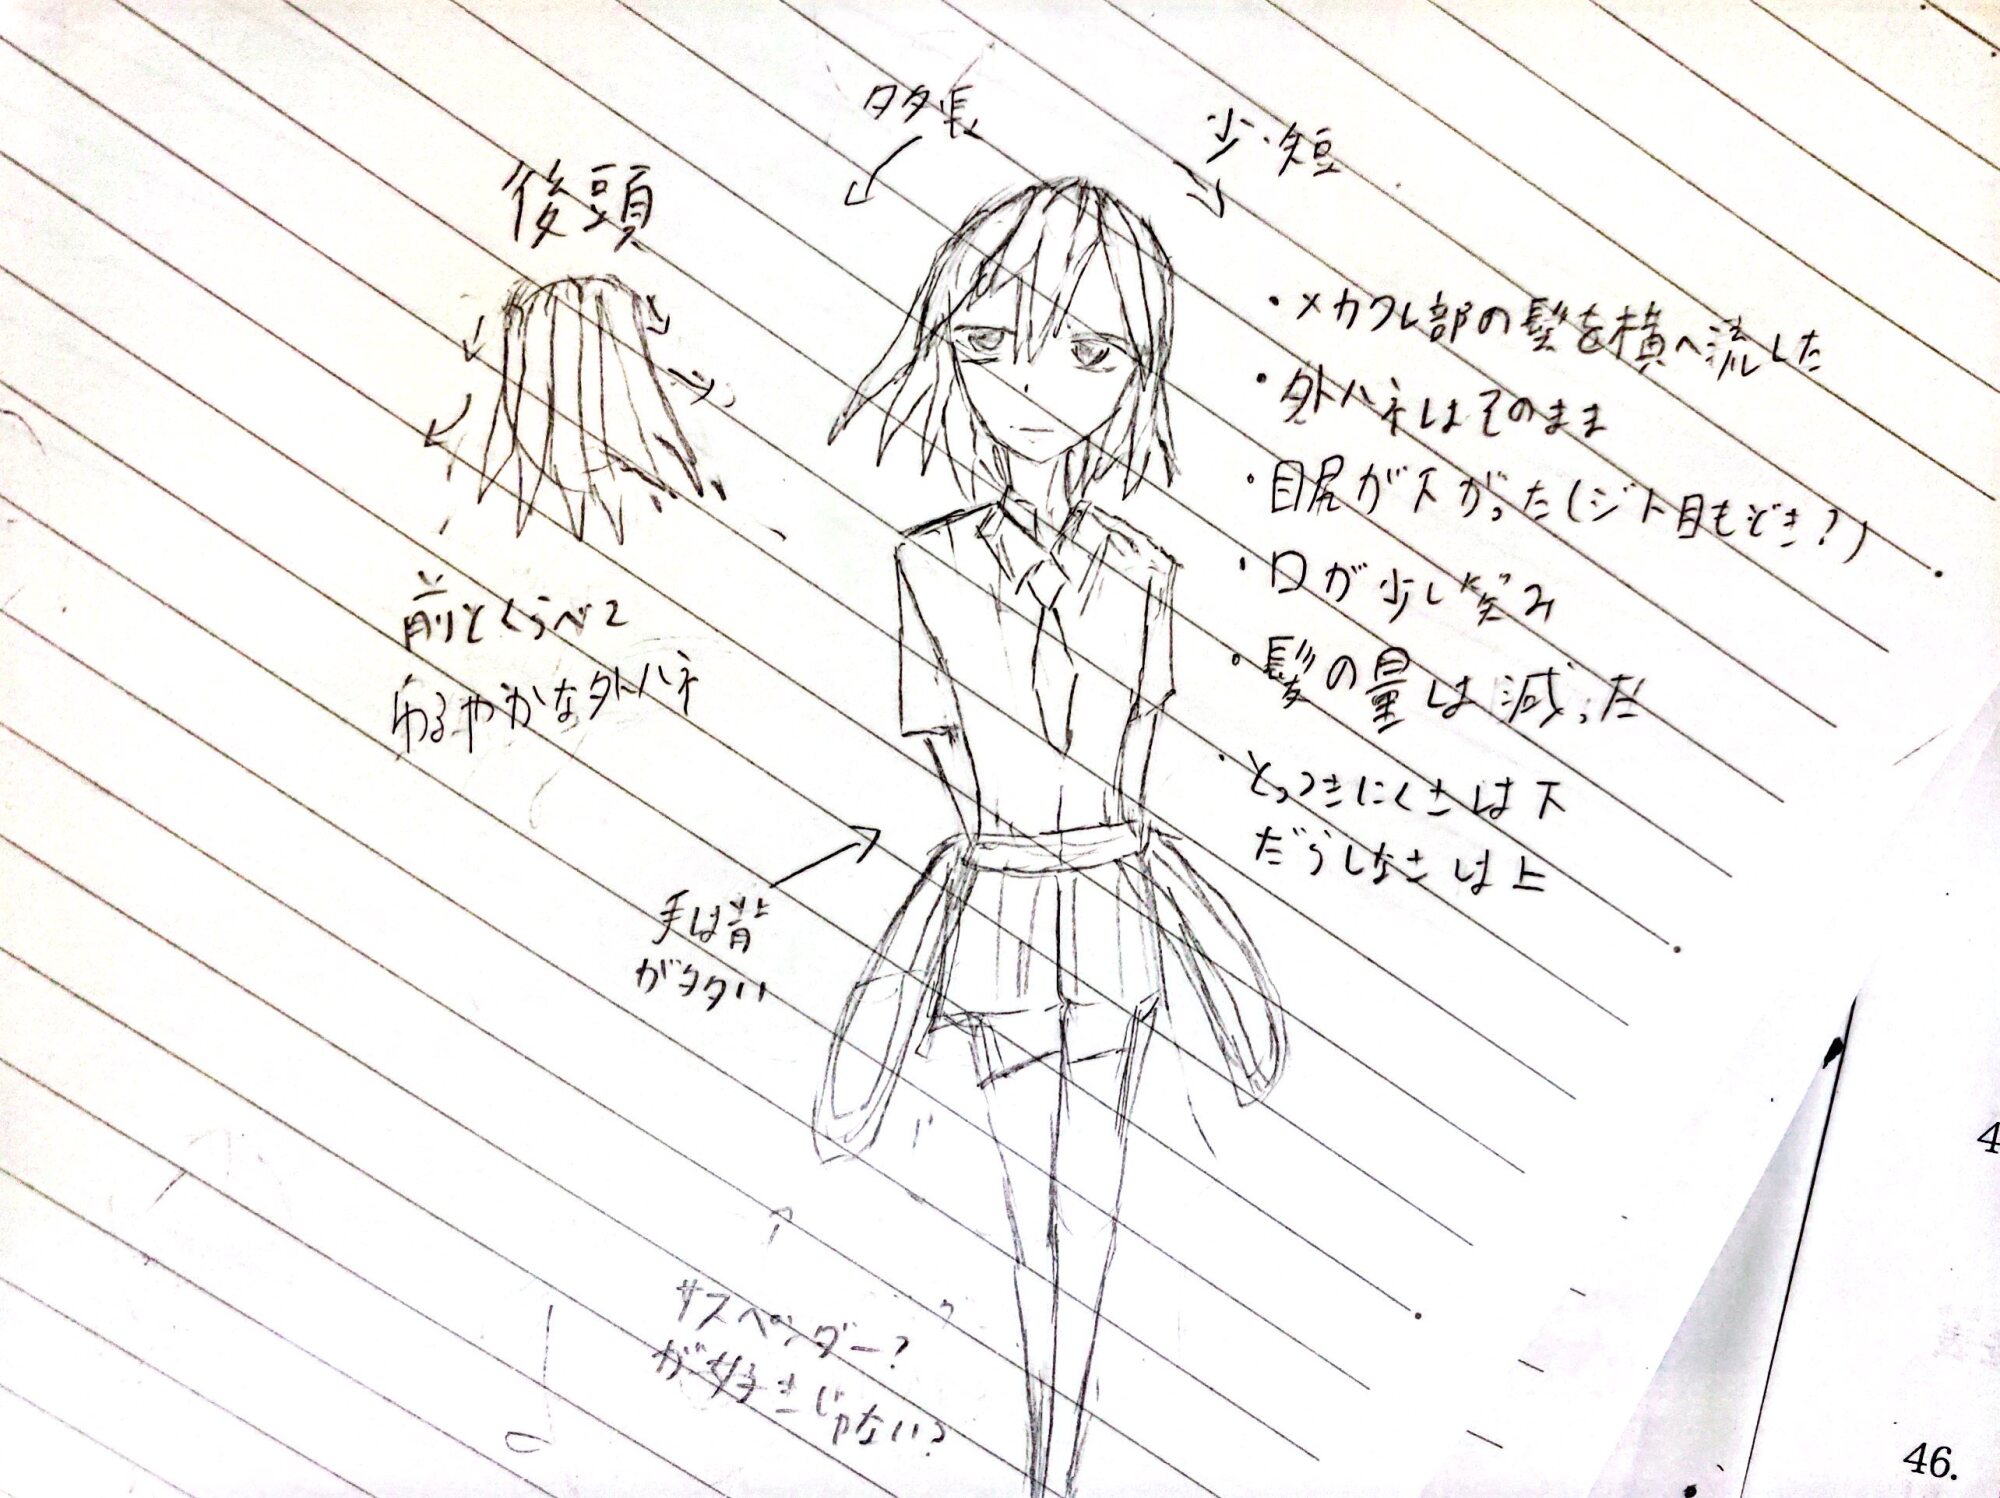 多・長
少・短
後頭
前とくらべて
ゆるやかな外ハネ
・メカクレ部の髪を横へ流した
・外ハネはそのまま
・目尻が下がった(ジト目もどき?)
・口が少し笑み
・髪の量は減った
・とっつきにくさは下
だらしなさは上
手は背
が多い
サスペンダー?
が好きじゃない?
46.